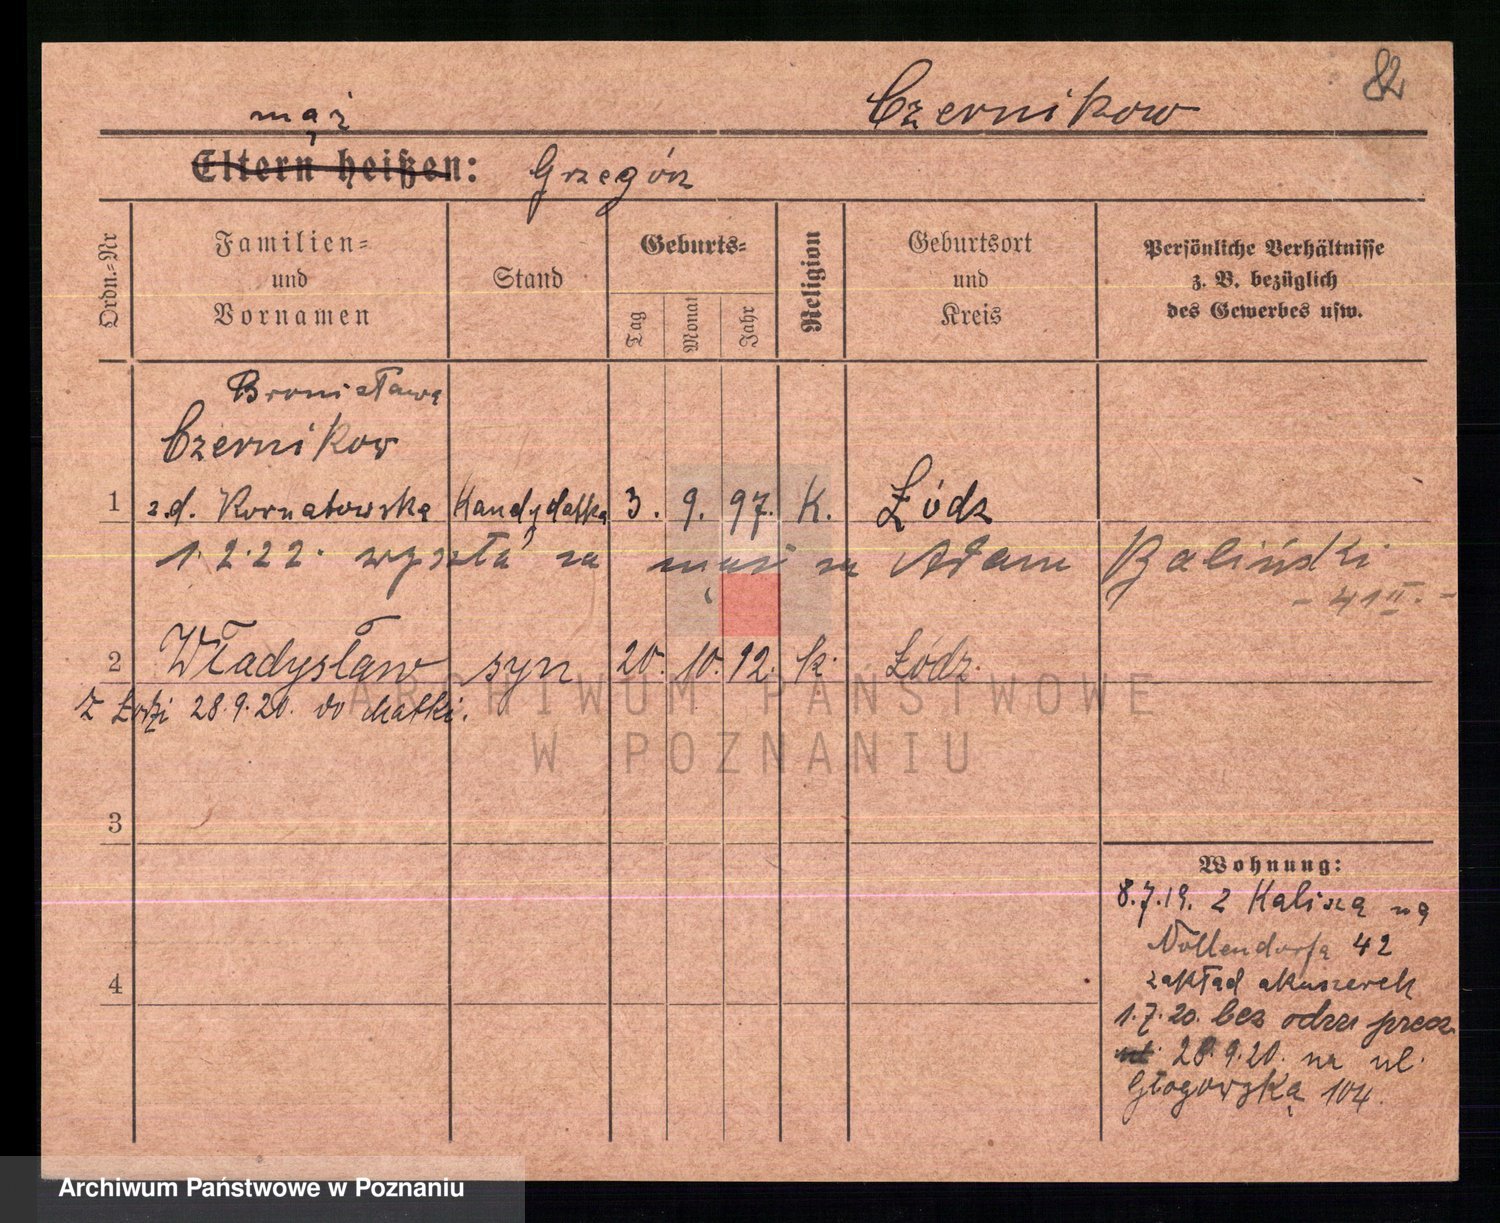 82
mąż Czernikow
Eltern heißen: Grzegórz
Ordn.=Nr
Familien= und Vornamen
Stand
Geburts=
Tag Monat Jahr
Religion
Geburtsort und Kreis
Persönliche Verhältnisse z. B. bezüglich des Gewerbes usw.
Bronisława
Czernikow
1 z.d. Kornatowska Kandydatka 3. 9. 97. K. Łódz
1.2.22. wyszła za mąż za Adam Baliński
- 41 II. -
2 Władysław syn 20. 10. 12. k. Łódz.
Z Łodzi 28.9.20. do Matki.
3
4
Wohnung:
8.7.19. z Kalisza na
Nollendorfa 42
zakład akuszerek
1.7.20. bez odzn precz
28.9.20. na ul.
Głogowską 104.
ARCHIWUM PAŃSTWOWE
W POZNANIU
Archiwum Państwowe w Poznaniu